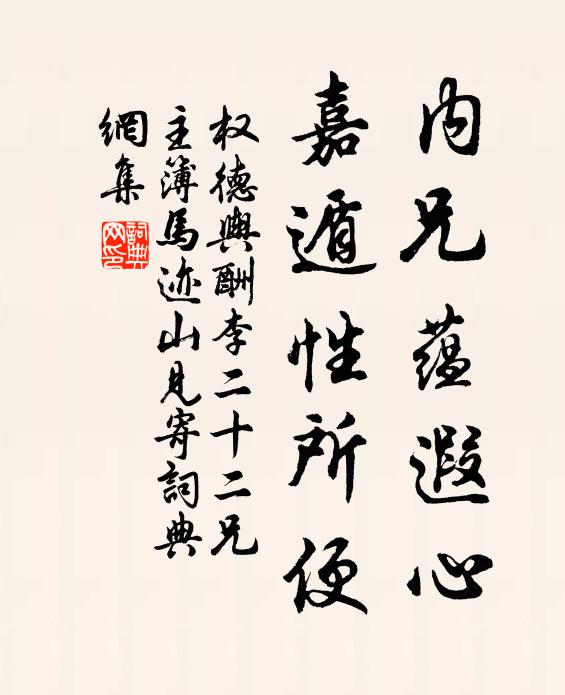 内兄蕴遐心
嘉遁性所便
权德舆酬李二十二兄
主簿馬迹山見寄詞典
網集
詞典网印